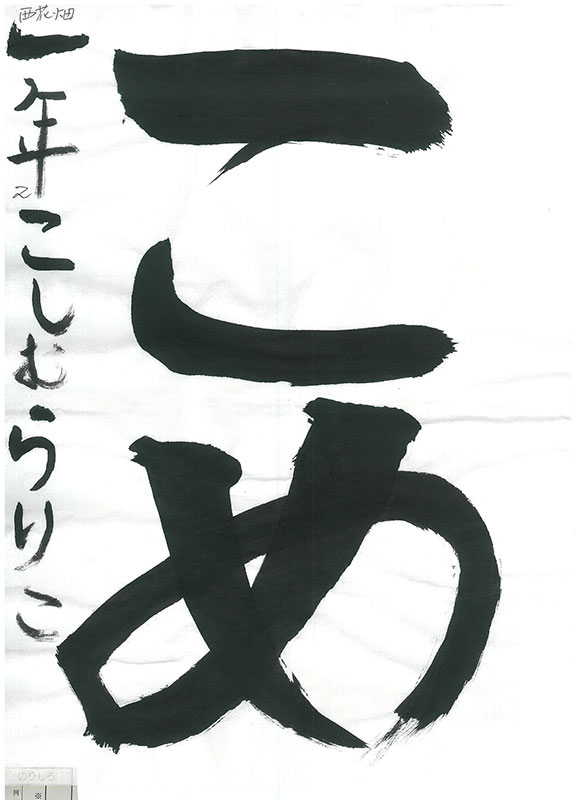 こめ
西花畑
一年こしむらりこ
2
のりしろ
例 ※